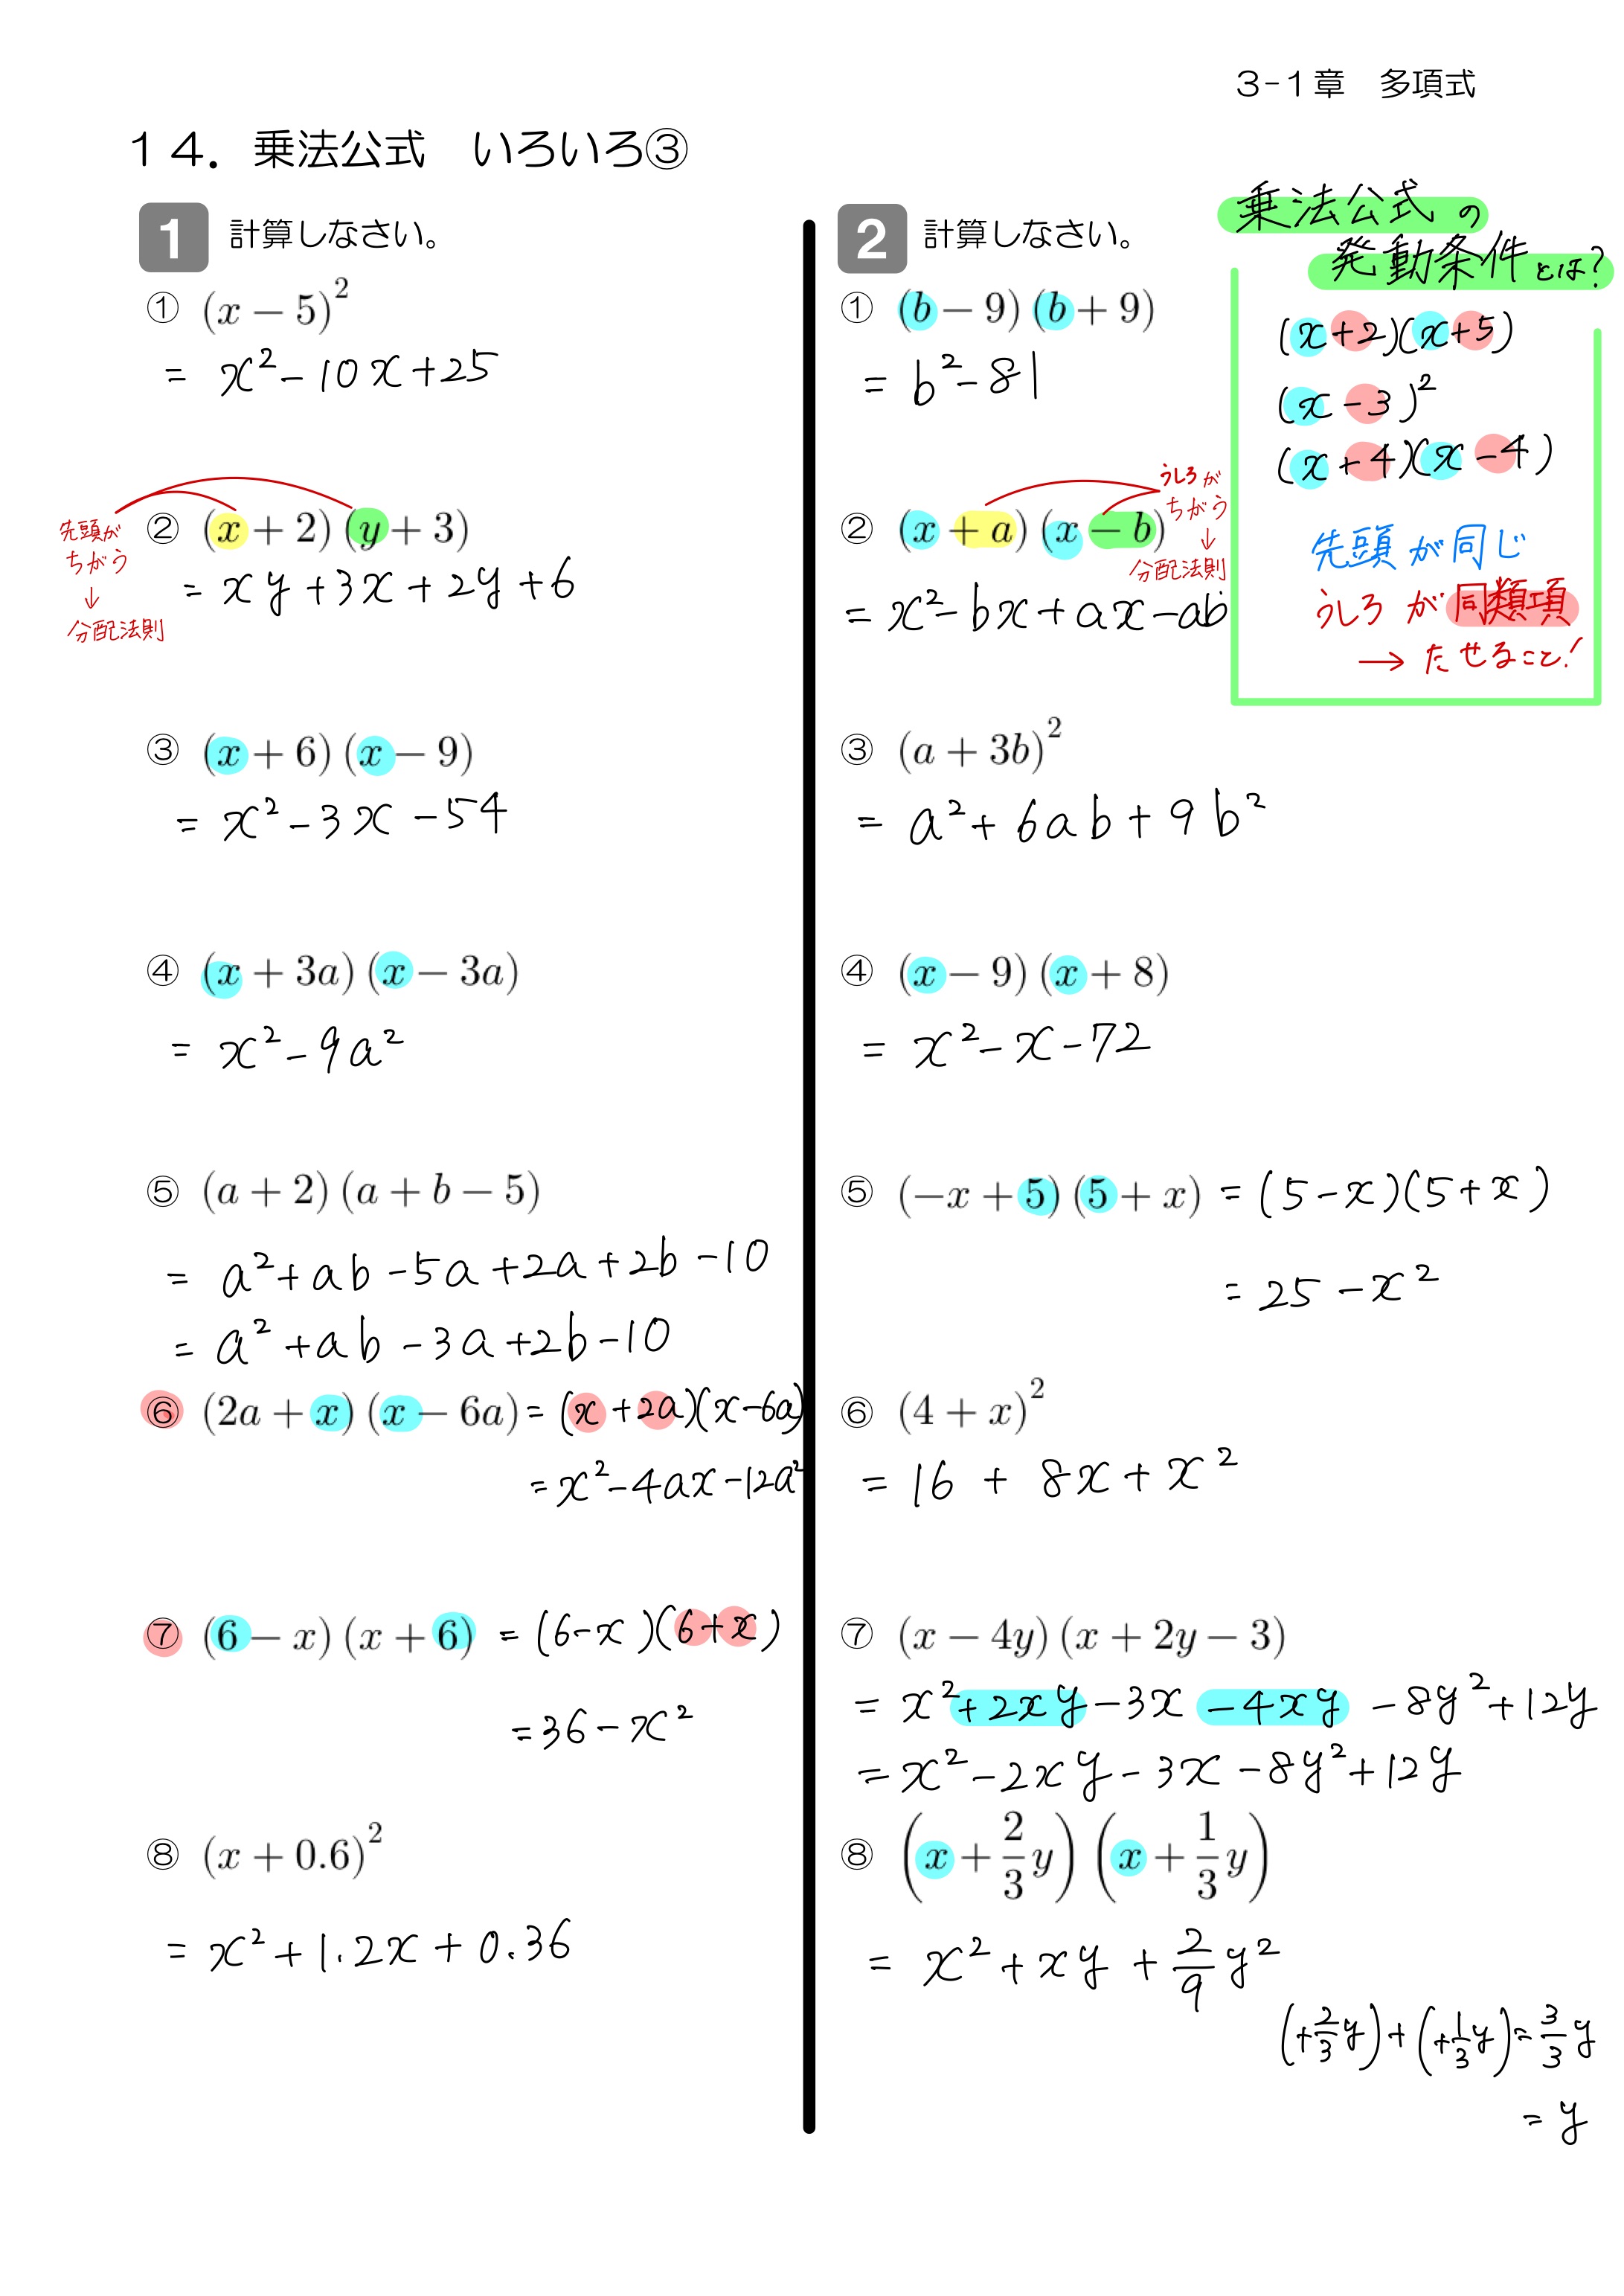 3-1章　多項式
14．乗法公式　いろいろ③
1 計算しなさい。
① (x − 5)²
= x² − 10x + 25
② (x + 2)(y + 3)
先頭が
ちがう
↓
分配法則
= xy + 3x + 2y + 6
③ (x + 6)(x − 9)
= x² − 3x − 54
④ (x + 3a)(x − 3a)
= x² − 9a²
⑤ (a + 2)(a + b − 5)
= a² + ab − 5a + 2a + 2b − 10
= a² + ab − 3a + 2b − 10
⑥ (2a + x)(x − 6a) = (x + 2a)(x − 6a)
= x² − 4ax − 12a²
⑦ (6 − x)(x + 6) = (6 − x)(6 + x)
= 36 − x²
⑧ (x + 0.6)²
= x² + 1.2x + 0.36
2 計算しなさい。
① (b − 9)(b + 9)
= b² − 81
② (x + a)(x − b)
うしろが
ちがう
↓
分配法則
= x² − bx + ax − ab
③ (a + 3b)²
= a² + 6ab + 9b²
④ (x − 9)(x + 8)
= x² − x − 72
⑤ (−x + 5)(5 + x) = (5 − x)(5 + x)
= 25 − x²
⑥ (4 + x)²
= 16 + 8x + x²
⑦ (x − 4y)(x + 2y − 3)
= x² + 2xy − 3x − 4xy − 8y² + 12y
= x² − 2xy − 3x − 8y² + 12y
⑧ (x + 2/3 y)(x + 1/3 y)
= x² + xy + 2/9 y²
(+2/3 y) + (+1/3 y) = 3/3 y
= y
乗法公式の
発動条件とは？
(x + 2)(x + 5)
(x − 3)²
(x + 4)(x − 4)
先頭が同じ
うしろが同類項
→ たせること！